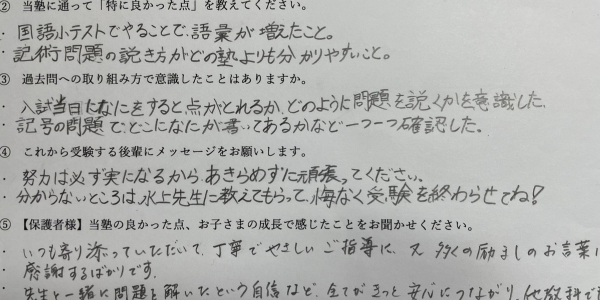 ② 当塾に通って「特に良かった点」を教えてください。
・国語小テストでやることで、語彙が増えたこと。
・記術問題の説き方がどの塾よりも分かりやすいこと。
③ 過去問への取り組み方で意識したことはありますか。
・入試当日になにをすると点がとれるか、どのように問題を説くかを意識した。
・記号の問題で、どこになにが書いてあるかなど一つ一つ確認した。
④ これから受験する後輩にメッセージをお願いします。
・努力は必ず実になるから、あきらめずに頑張ってください。
・分からないところは、水上先生に教えてもらって、悔なく受験を終わらせてね!
⑤ 【保護者様】当塾の良かった点、お子さまの成長で感じたことをお聞かせください。
・いつも寄り添っていただいて、丁寧でやさしいご指導に、又多くの励ましのお言葉に
・感謝するばかりです。
先生と一緒に問題を解いたという自信など、全てがきっと安心につながり、他教科で